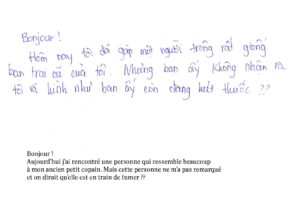 Bonjour !
Hôm nay tôi đã gặp một người trông rất giống
bạn trai cũ của tôi. Nhưng bạn ấy không nhận ra
tôi và hình như bạn ấy còn đang hút thuốc ??
Bonjour !
Aujourd'hui j'ai rencontré une personne qui ressemble beaucoup
à mon ancien petit copain. Mais cette personne ne m'a pas remarqué
et on dirait qu'elle est en train de fumer ??